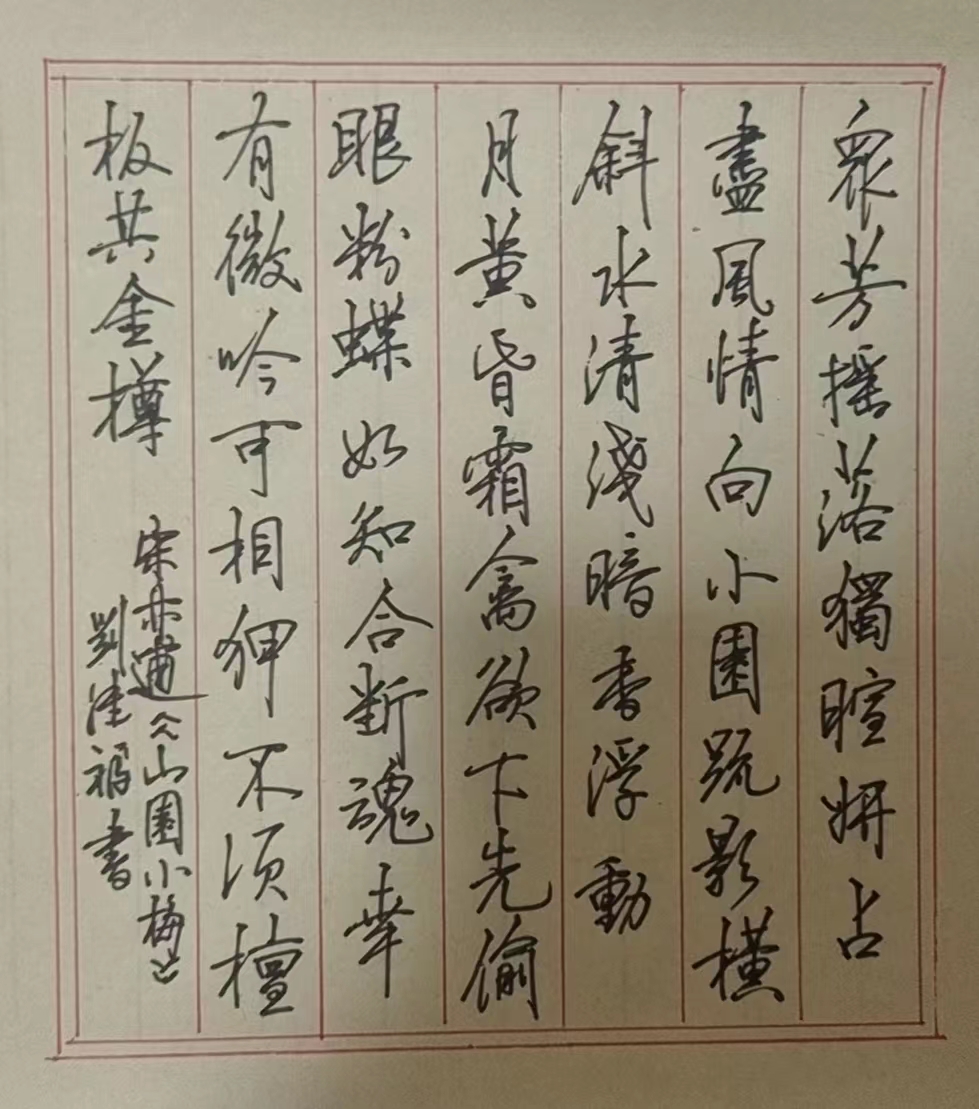 眾芳摇落獨暄妍占
盡風情向小園疏影横
斜水清淺暗香浮動
月黄昏霜禽欲下先偷
眼粉蝶如知合断魂幸
有微吟可相狎不须檀
板共金樽
宋 逋《山園小梅》
劉 福書